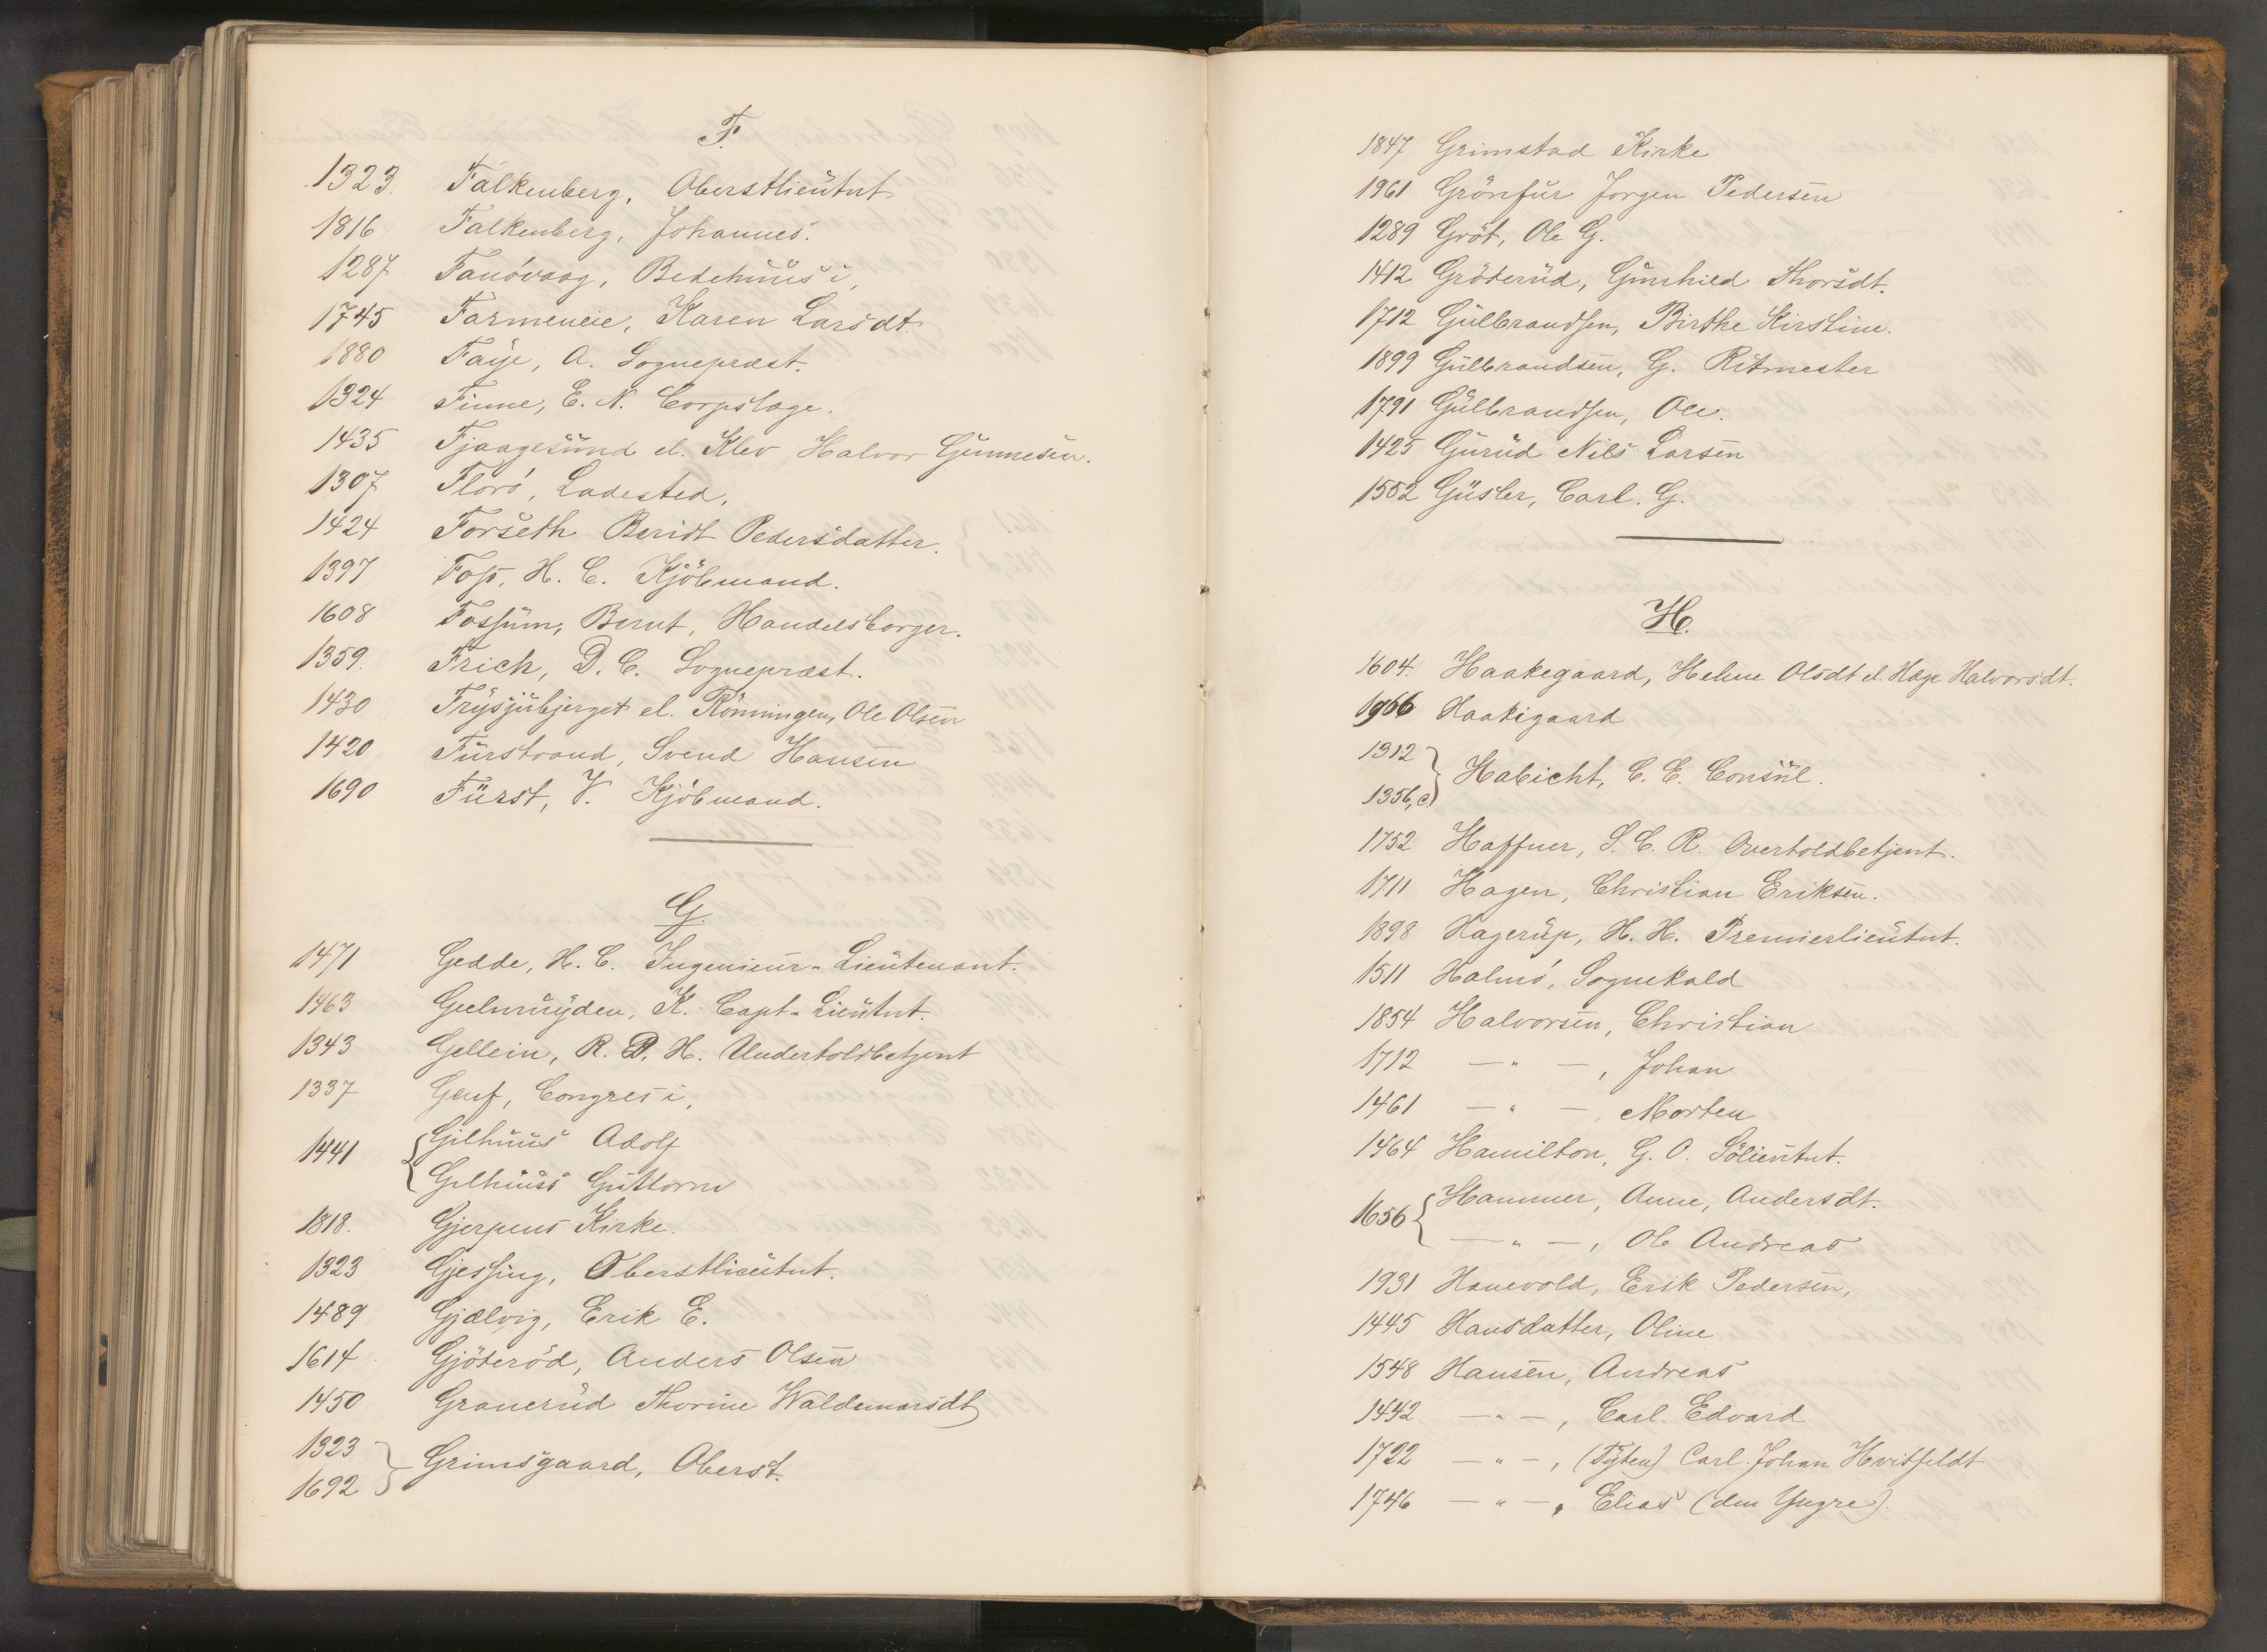 F.
1323. Falkenberg, Oberstlieutnt
1816 Falkenberg, Johannes.
1287 Fanövaag, Bedehuus i,
1745 Farmeneie, Karen Larsdt
1880 Faye, A. Sognepræst.
1324 Finne, E. N. Corpslæge.
1435 Fjaagesund el. Klev Halvor Gunnesen.
1307 Florö, Ladested,
1424 Forseth Beridt Pedersdatter.
1397 Foss, H. C. Kjöbmand.
1608 Fossum, Bernt, Handelsborger.
1359. Frich, D. C. Sognepræst.
1430 Frysjubjerget el. Rönningen, Ole Olsen
1420 Furstrand, Svend Hansen
1690 Fürst, V. Kjöbmand.
G.
1471 Gedde, H. C. Ingenieur-Lieutenant.
1463 Geelmuyden, K. Capt-Lieutnt.
1343 Gellein, R. D. H. Undertoldbetjent
1337 Genf, Congres i,
1441 { Gilhuus Adolf
Gilhuus Guttorm
1818. Gjerpens Kirke.
1323 Gjessing, Oberstlieutnt.
1489 Gjælvig, Erik E.
1614 Gjöteröd, Anders Olsen
1450 Granerud Thorine Waldemarsdt
1323
1692 } Grimsgaard, Oberst.
1847 Grimstad Kirke
1961 Grönfur Jorgen Pedersen
1289 Gröt, Ole G.
1412 Gröterud, Gunhild Thorsdt.
1712 Gulbrandsen, Birthe Kirstine.
1899 Gulbrandsen, G. Ritmester
1791 Gulbrandsen, Ole.
1425 Gurud Nils Larsen
1552 Güsler, Carl. G.
H.
1604. Haakegaard, Helene Olsdt el. Hæge Halvorsdt.
1966 Haakigaard
1312
1356,c. } Habicht, C. E. Consul.
1752 Haffner, S. C. R. Overtoldbetjent.
1711 Hagen, Christian Eriksen.
1898 Hagerup, H. H. Premierlieutnt.
1511 Halmö, Sognekald
1854 Halvorsen, Christian
1712 — " —, Johan
1461 — " —, Morten
1464 Hamilton, G. O. Sölieutnt.
1656 { Hammer, Anne, Andersdt.
— " —, Ole Andreas
1931 Hanevold, Erik Pedersen,
1445 Hansdatter, Oline
1548 Hansen, Andreas
1442 — " —, Carl Edvard
1722 — " —, (Tyten) Carl Johan Hvitfeldt
1746 — " —, Elias (den Yngre)